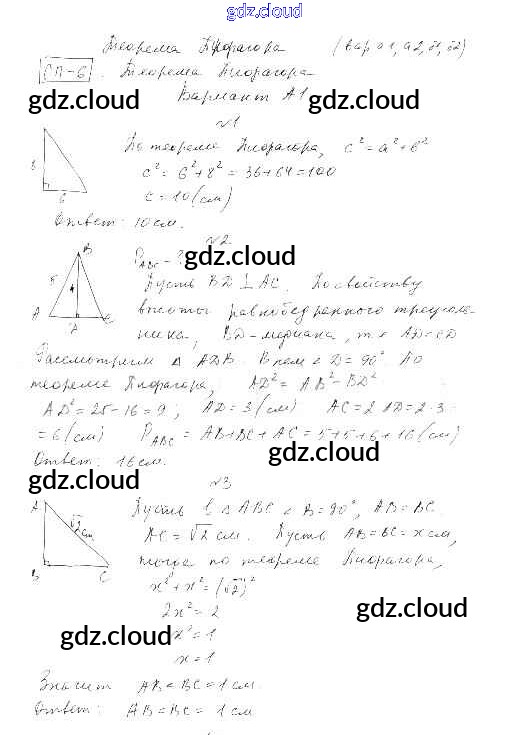 gdz.cloud
Теорема Пифагора (вар а1, а2, б1, б2)
СП-6. Теорема Пифагора
gdz.cloud gdz.cloud
Вариант А1
№1
8
6
По теореме Пифагора, c² = a² + b²
c² = 6² + 8² = 36 + 64 = 100
c = 10 (см)
Ответ: 10 см.
№2
B
5
4
A
C
P ABC - ?
gdz.cloud
Пусть BD ⊥ AC. По свойству
высоты равнобедренного треуголь-
ника, BD - медиана, т.е. AD = CD
Рассмотрим △ ADB. В нем ∠D = 90°. По
теореме Пифагора, AD² = AB² - BD²
AD² = 25 - 16 = 9; AD = 3 (см) AC = 2AD = 2·3
= 6 (см) P ABC = AB + BC + AC = 5 + 5 + 6 + 16 (см)
gdz.cloud
Ответ: 16 см.
gdz.cloud
№3
A
√2 см
B
C
Пусть в △ ABC ∠B = 90°, AB = BC.
AC = √2 см. Пусть AB = BC = x см,
тогда по теореме Пифагора,
x² + x² = (√2)²
2x² = 2
gdz.cloud
x² = 1
gdz.cloud
x = 1
Значит AB = BC = 1 см.
Ответ: AB = BC = 1 см